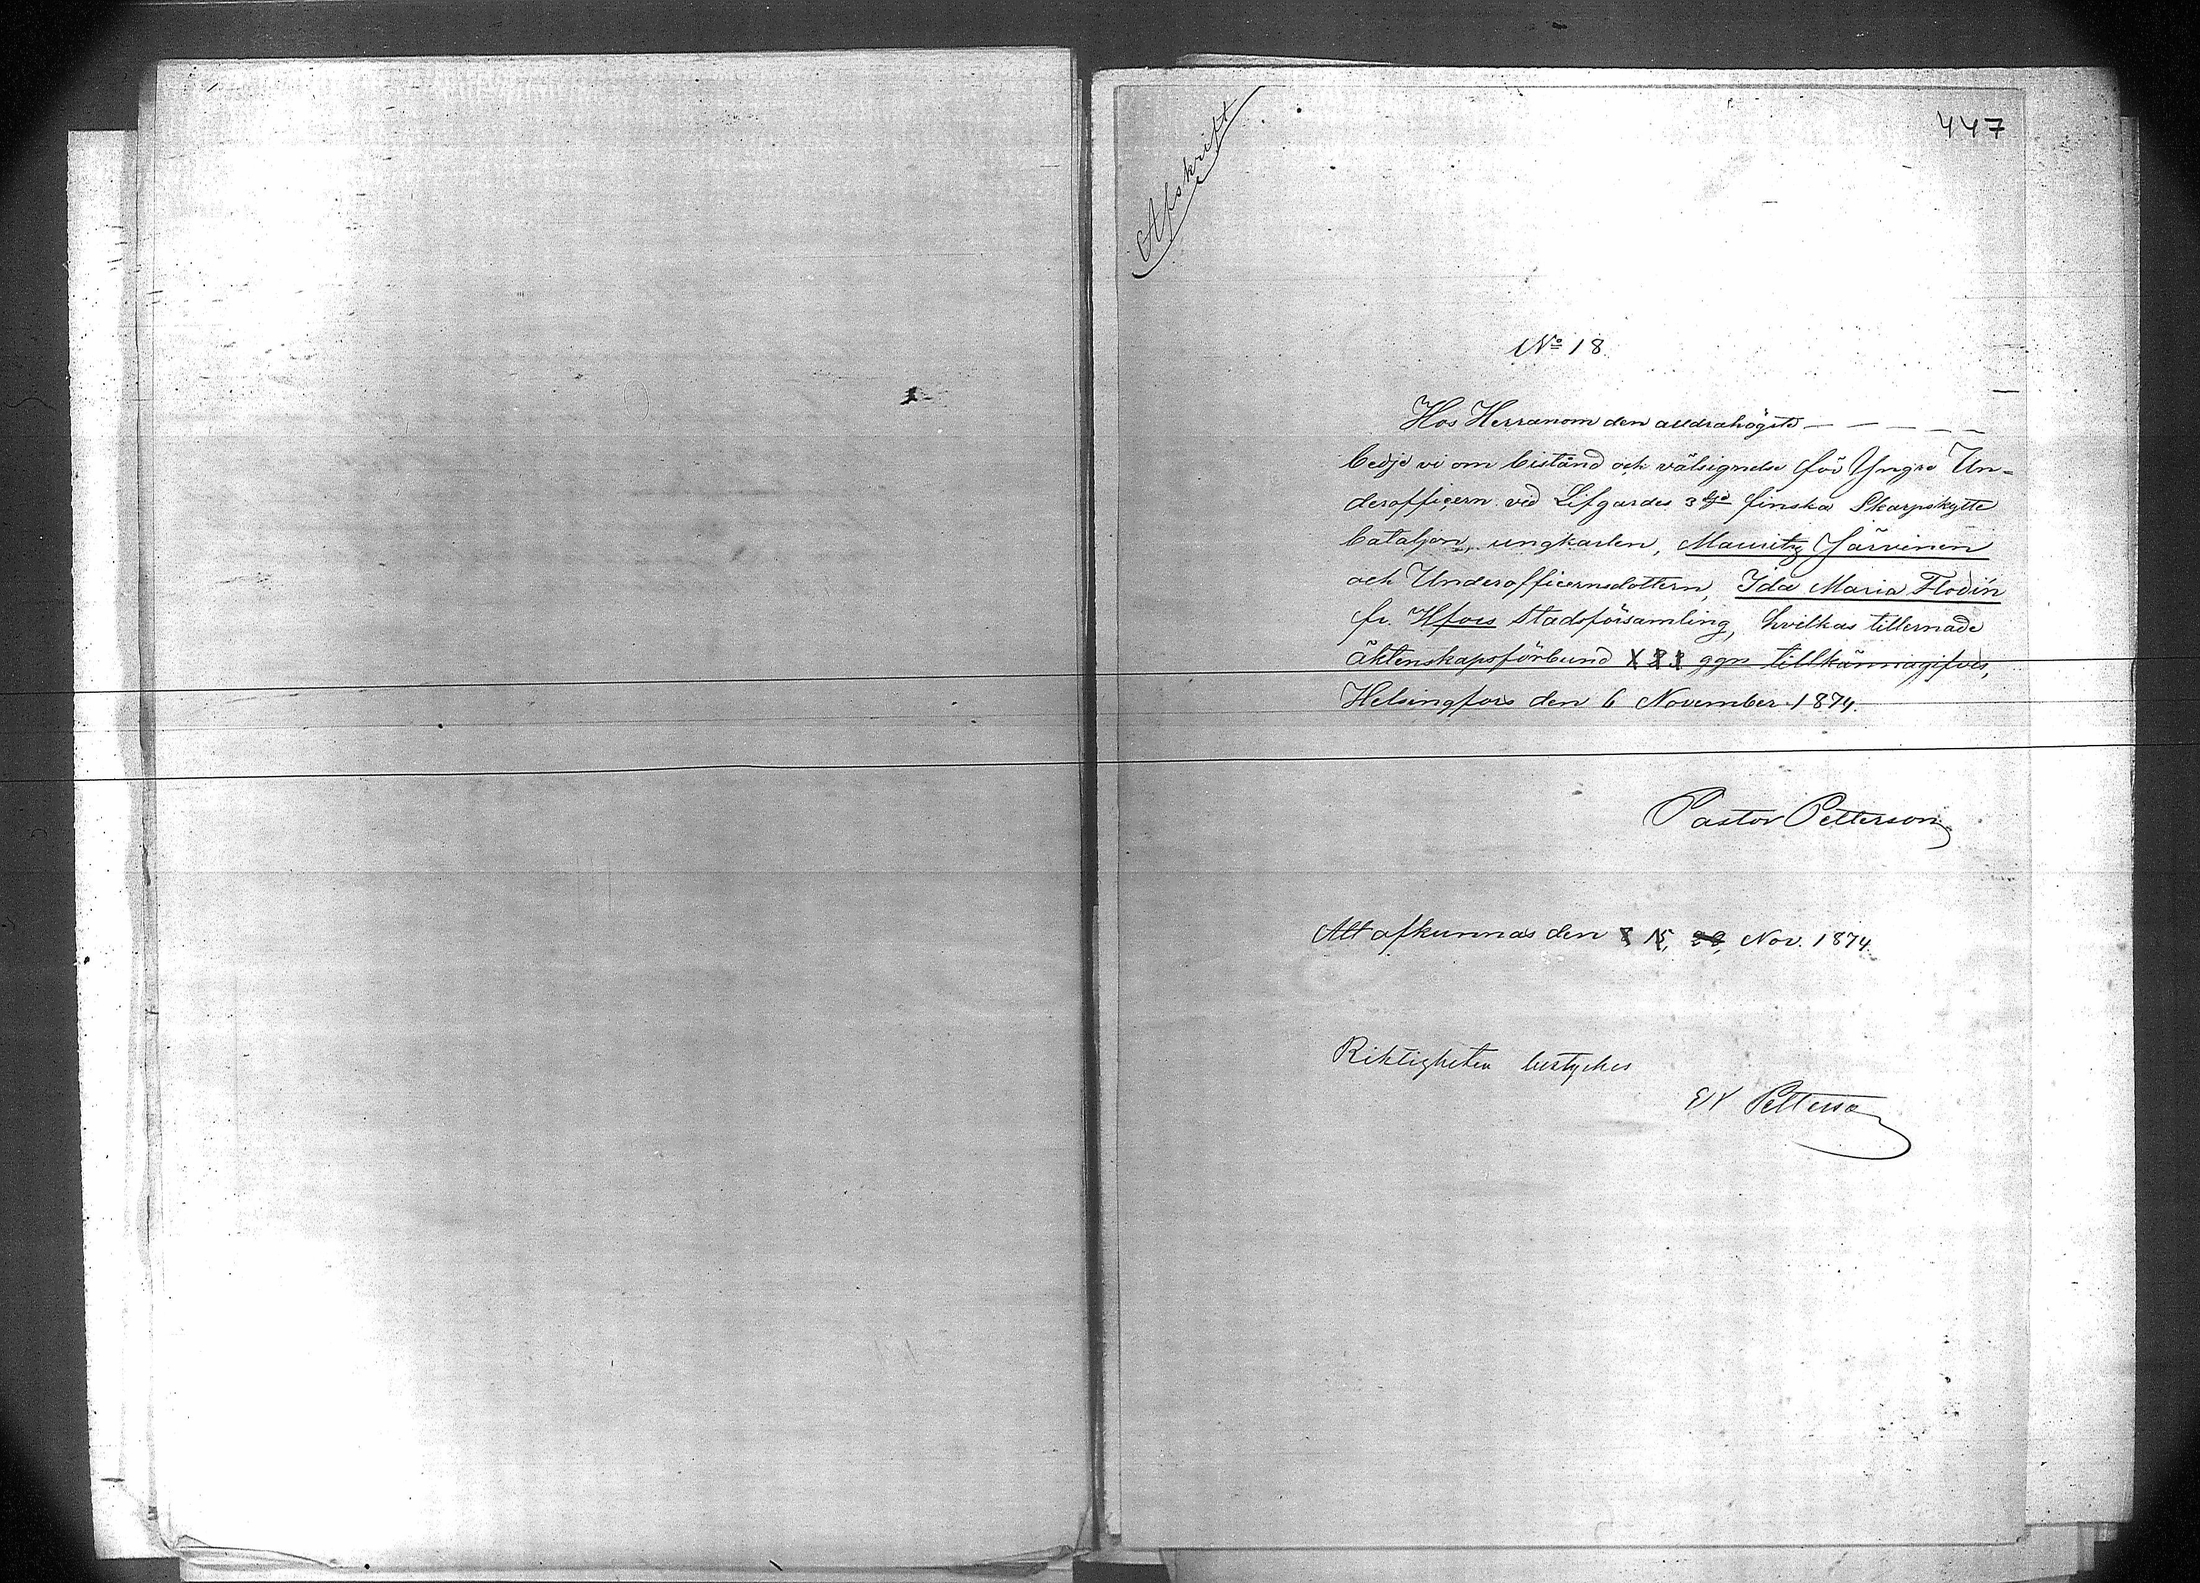 447
Afskrift
No 18.
Hos Herranom den alldrahögste — — — — —
bedje vi om bistånd och välsignelse för Yngre Un=
derofficern vid Lifgardes 3dje finska Skarpskytte
bataljon, ungkarlen, Mauritz Järvinen
och Underofficersdottern, Ida Maria Flodin
fr. Hfors Stadsförsamling, hvilkas tillernade
äktenskapsförbund ggn tillkännagifves,
Helsingfors den 6 November 1874.
Pastor Petterson
Att afkunnas den 8 15, 22, Nov. 1874.
Riktigheten bestyrkes
Petterson